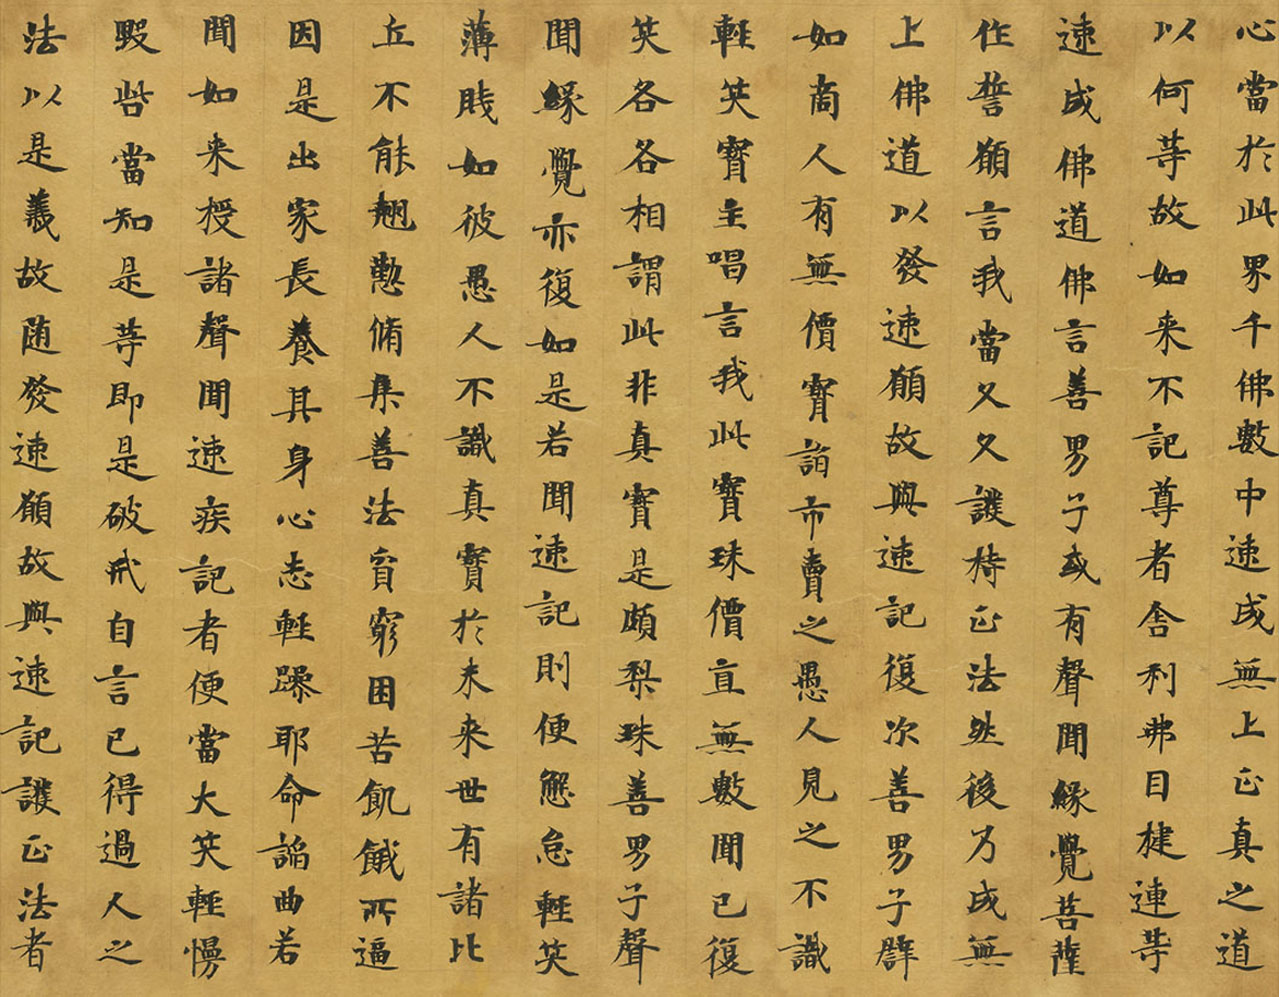 心當於此界千佛數中速成無上正真之道
以何等故如来不記尊者舍利弗目揵連等
速成佛道佛言善男子或有聲聞緣覺菩薩
作誓願言我當久久護持正法然後乃成無
上佛道以發速願故與速記復次善男子譬
如商人有無價寶詣市賣之愚人見之不識
輕笑寶主唱言我此寶珠價直無數聞已復
笑各各相謂此非真寶是頗梨珠善男子聲
聞緣覺亦復如是若聞速記則便懈怠輕笑
薄賤如彼愚人不識真寶於未来世有諸比
丘不能翹懃脩集善法貧窮困苦飢餓所逼
因是出家長養其身心志輕躁耶命諂曲若
聞如来授諸聲聞速疾記者便當大笑輕慢
毀呰當知是等即是破戒自言已得過人之
法以是義故随發速願故與速記護正法者